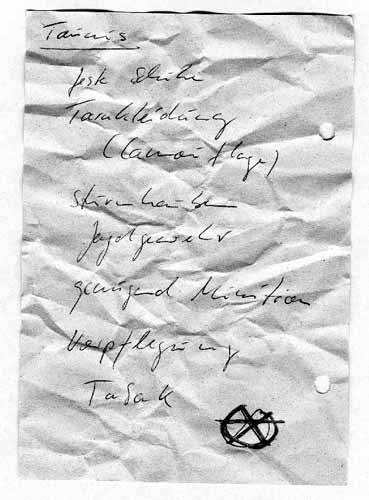 Taunus
feste Schuhe
Tarnkleidung
(Camouflage)
Sturmhauben
Jagdgewehr
genügend Munition
Verpflegung
Tabak